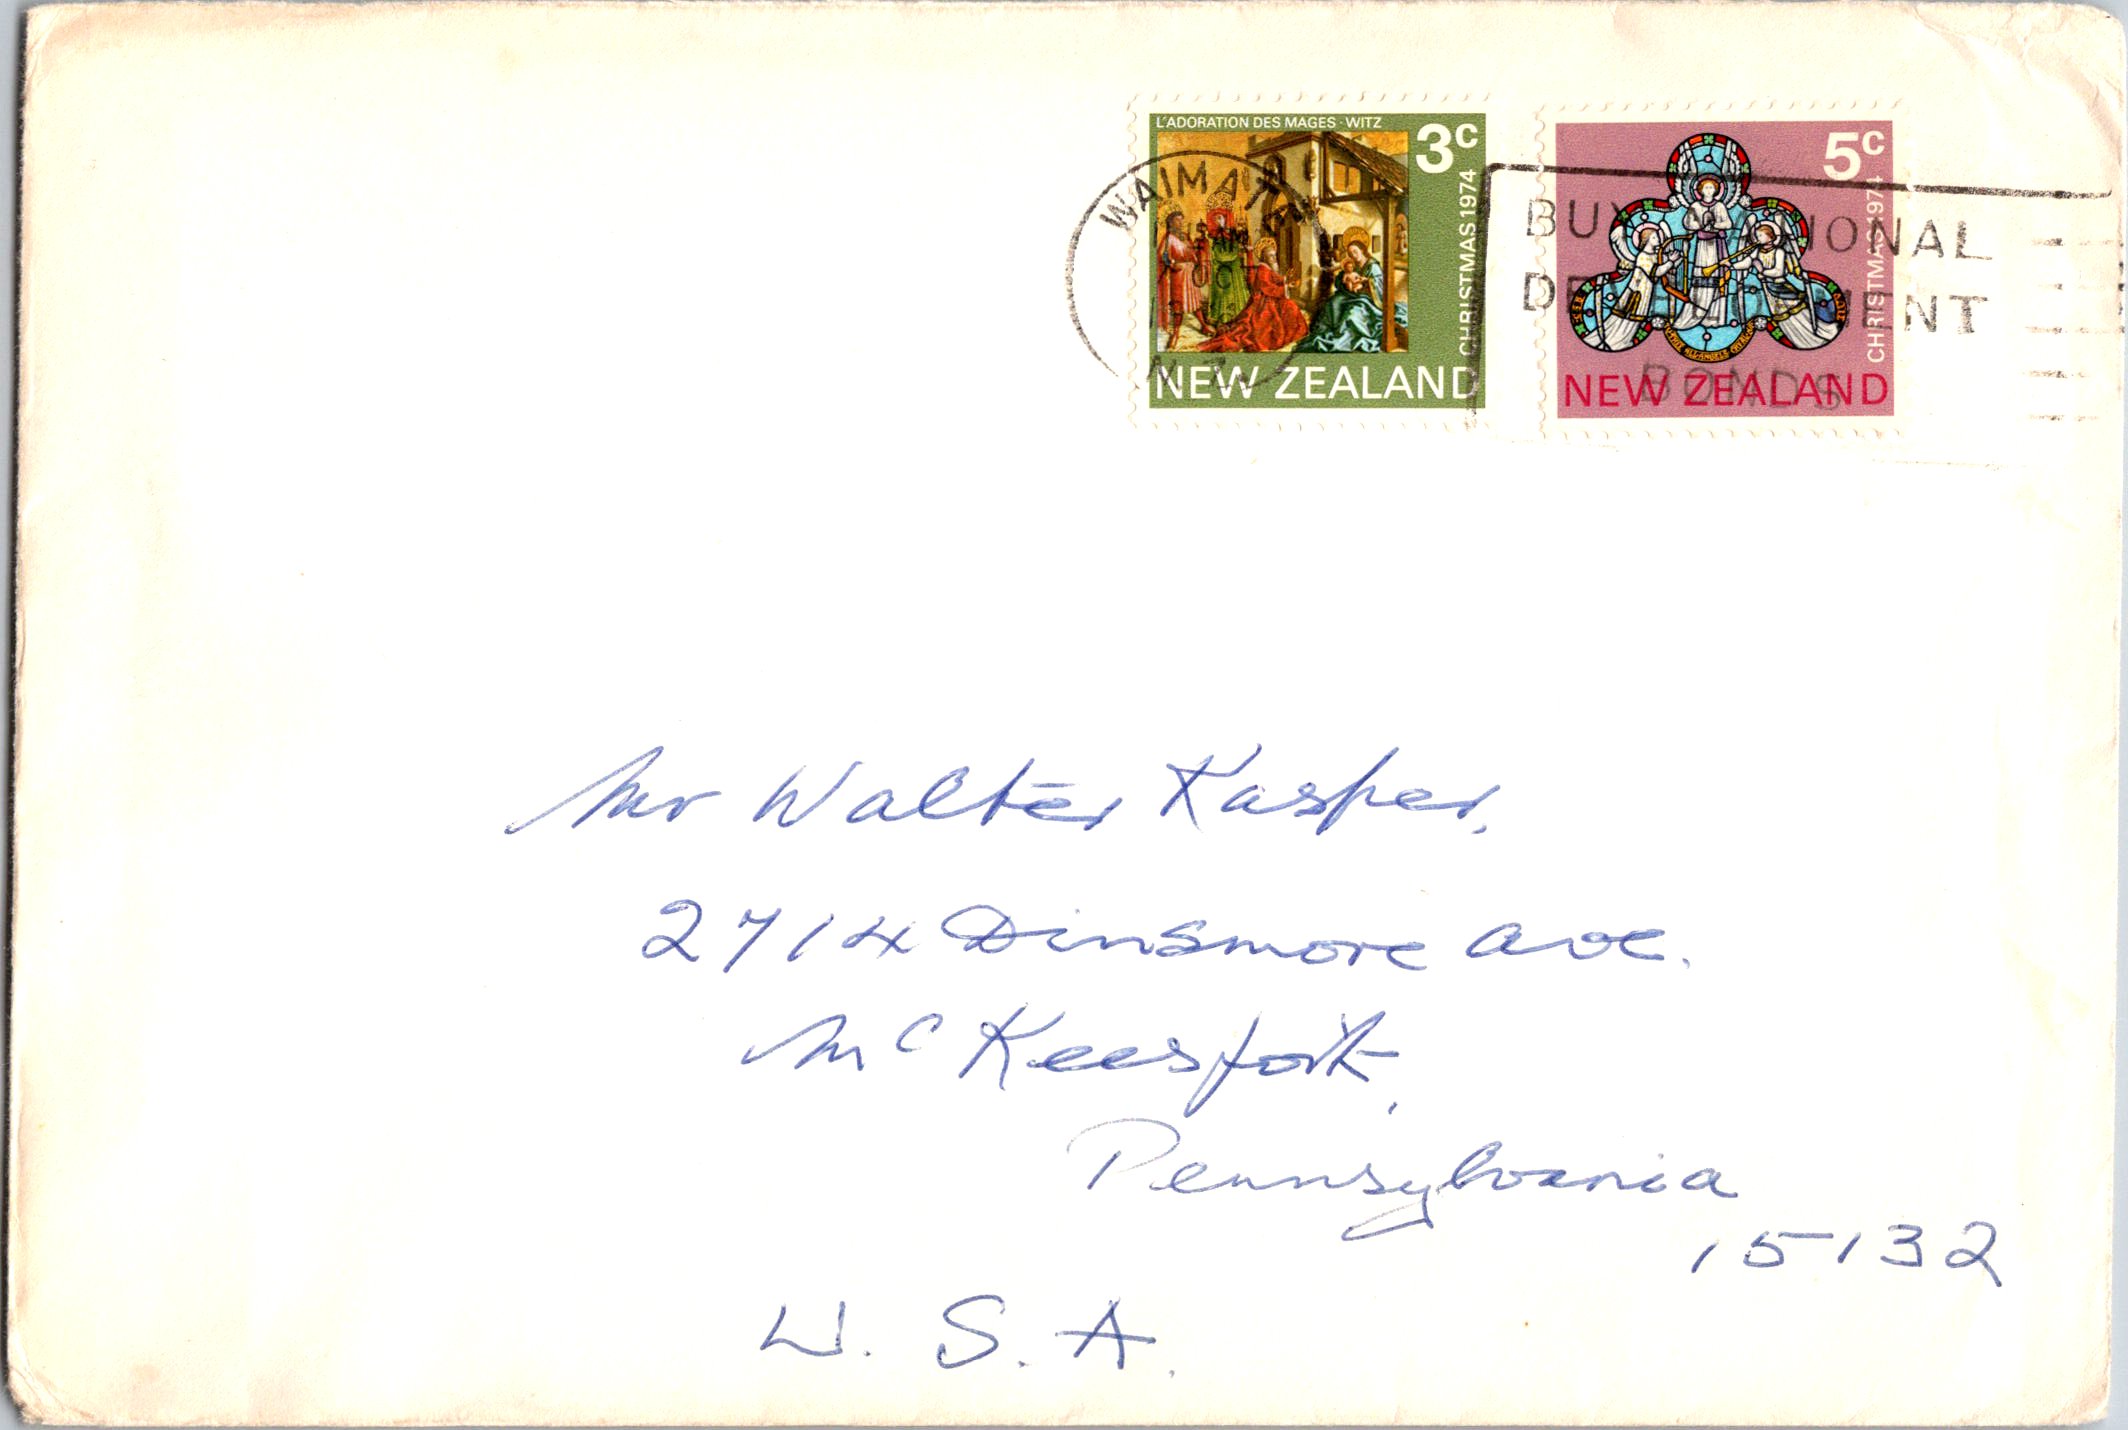 L'ADORATION DES MAGES · WITZ
3c
CHRISTMAS 1974
NEW ZEALAND
5c
CHRISTMAS 1974
NEW ZEALAND
WAIMATE
N.Z.
BUY NATIONAL
DEVELOPMENT
BONDS
Mr Walter Kasper,
2714 Dinsmore Ave.
McKeesport,
Pennsylvania
15132
U.S.A.